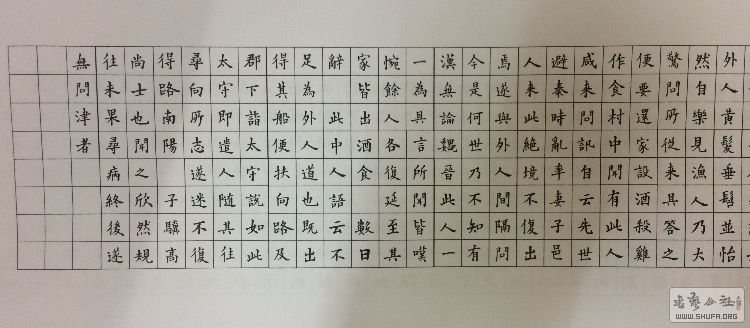 外人黃髮垂髫並怡
然自樂見漁人乃大
驚問所從來具答之
便要還家設酒殺雞
作食村中聞有此人
咸來問訊自云先世
避秦時亂率妻子邑
人來此絕境不復出
焉遂與外人間隔問
今是何世乃不知有
漢無論魏晉此人一
一為具言所聞皆嘆
惋餘人各復延至其
家皆出酒食 數日
辭 此中人語云不
足為外人道也既出
得其船便扶向路及
郡下詣太守說如此
太守即遣人隨其往
尋向所志遂迷不復
得路南陽 子驥高
尚士也聞之欣然規
往未果尋病終後遂
無問津者
書藝公社
WWW.SHUFA.ORG